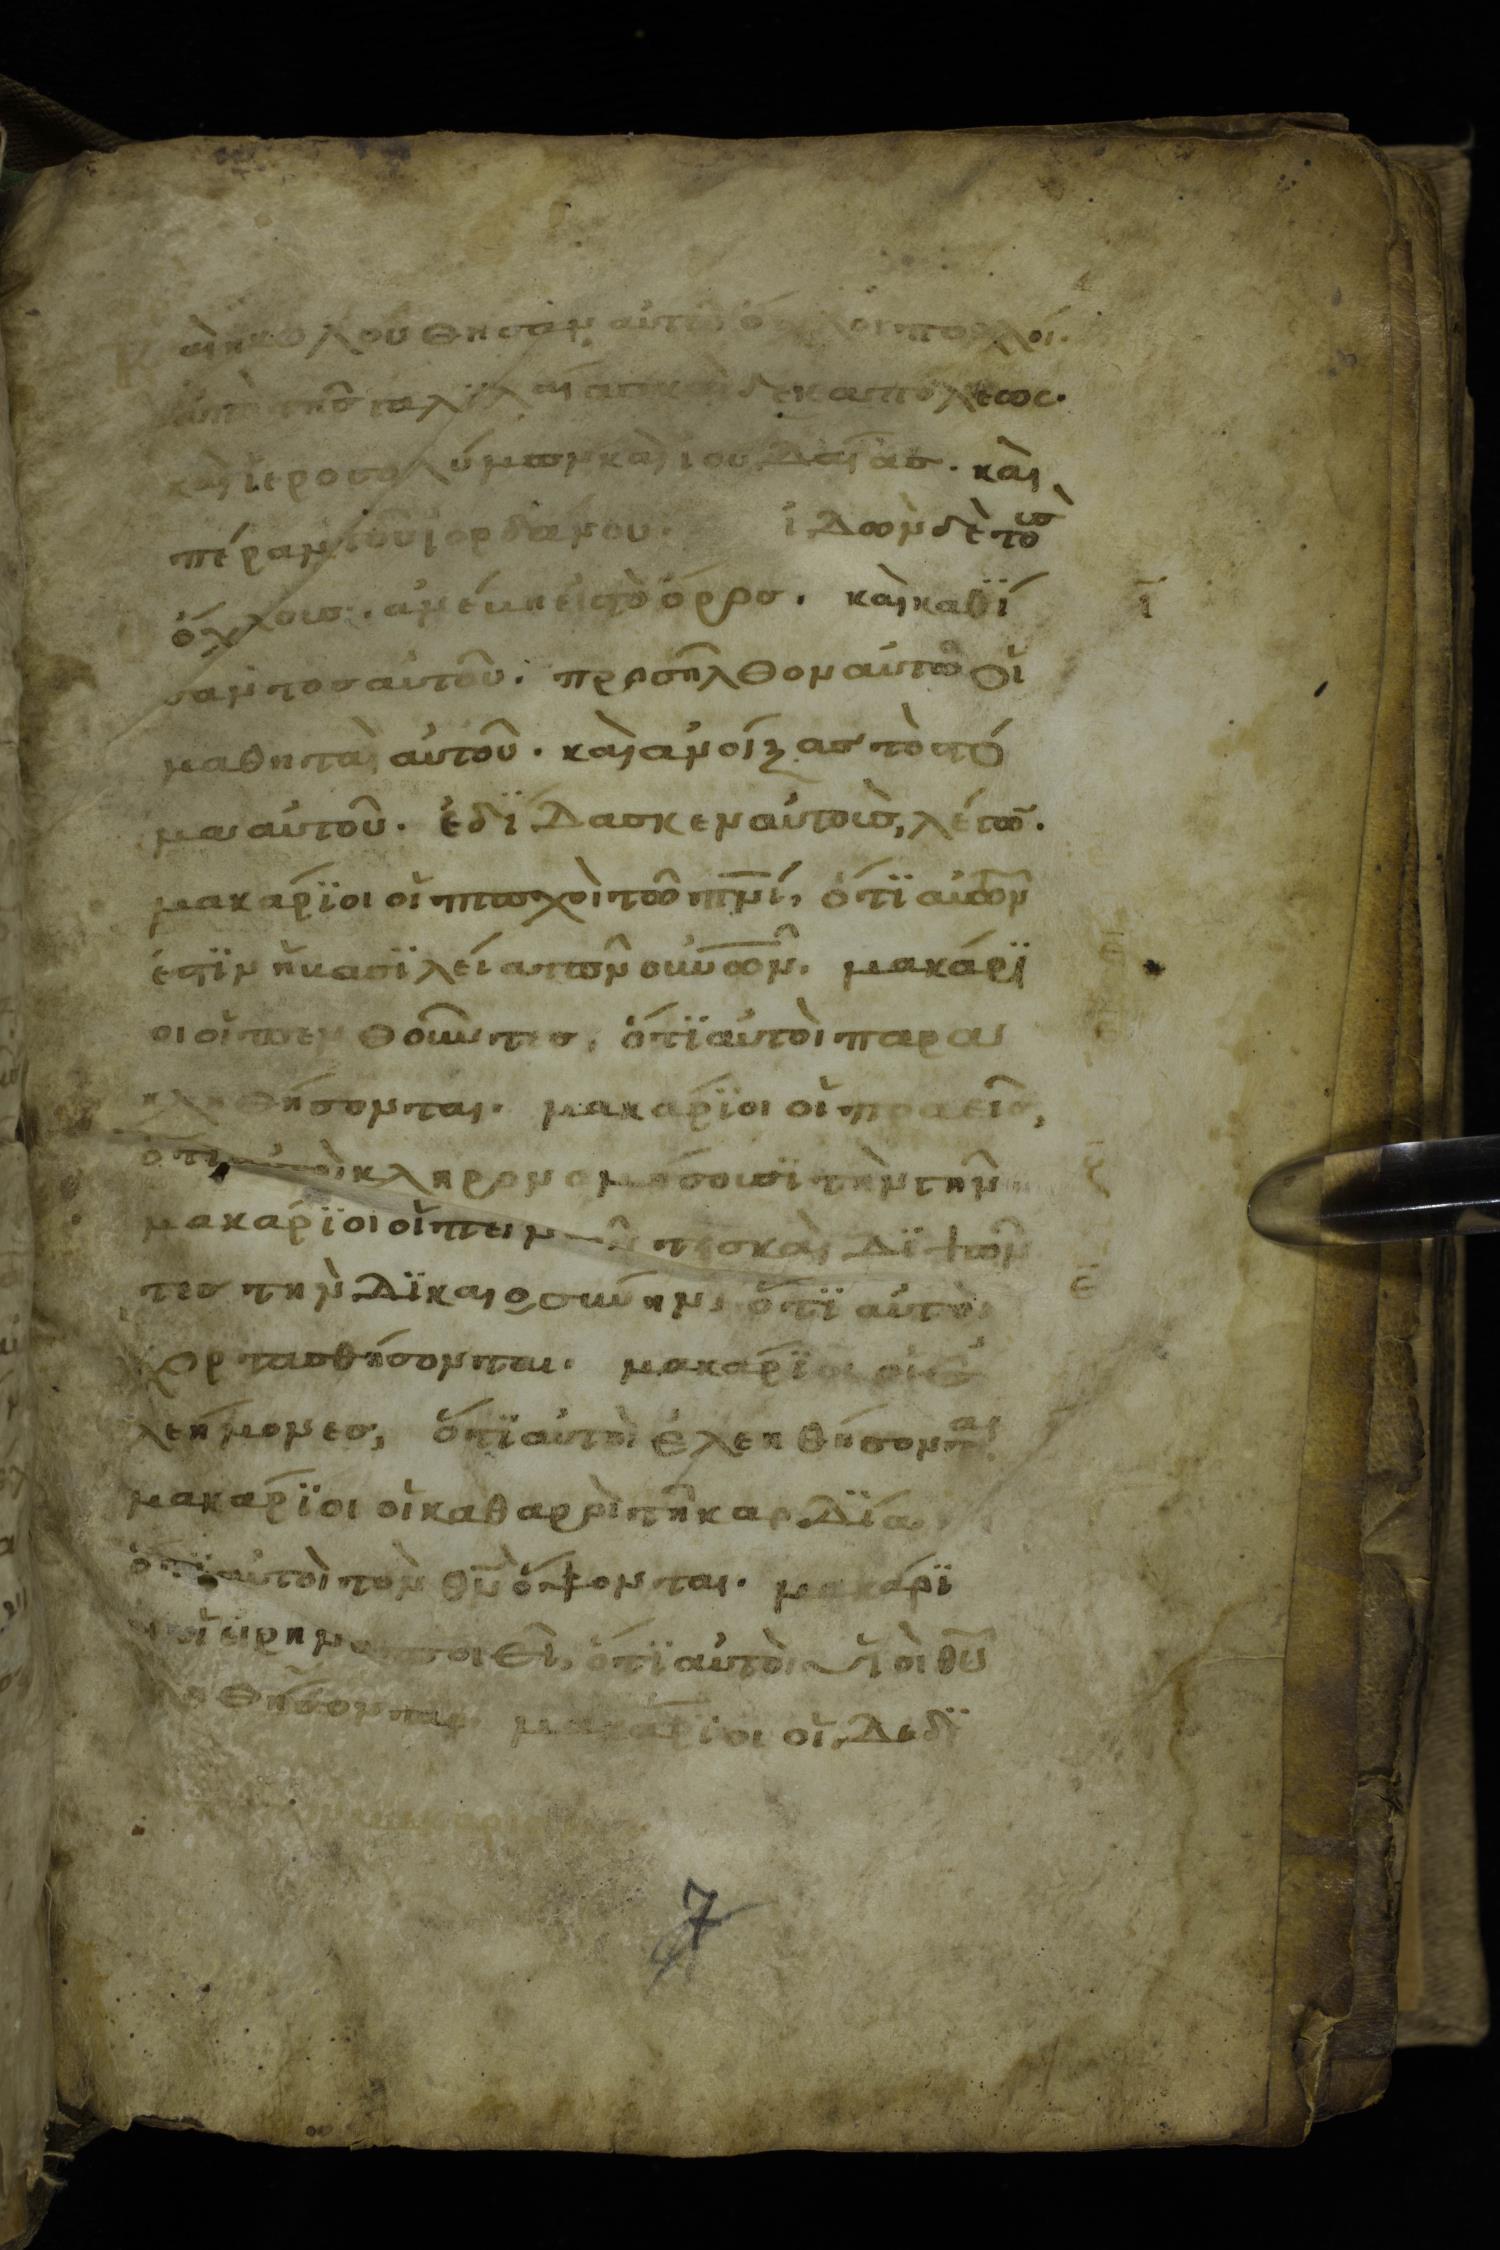 Καὶ ἠκολούθησαν αὐτῶ ὄχλοι πολλοί.
ἀπὸ τῆσ γαλϊλαίασ καὶ δεκαπόλεως.
καὶ ἱεροσολύμων καὶ ϊουδαίασ. καὶ
πέραν τοῦ ϊορδάνου. ἰδὼν δὲ τοὺσ
ὄχλουσ. ἀνέβη εἰσ τὸ ὄροσ. καὶ καθΐ
σαντοσ αὐτοῦ. προσῆλθον αὐτῶ οἱ
μαθηταὶ αὐτοῦ. καὶ ἀνοίξασ τὸ στό
μα αὐτοῦ. ἐδΐδασκεν αὐτοὺσ, λέγων.
μακάρϊοι οἱ πτωχοὶ τῶ πνϊ, ὅτϊ αὐτῶν
ἐστϊν ἡ βασϊλεία τῶν οὐνῶν. μακάρϊ
οι οἱ πενθοῦντεσ, ὅτϊ αὐτοὶ παρα
κληθήσονται. μακάρϊοι οἱ πραεῖσ,
ὅτι αὐτοὶ κληρονομήσουσϊ τὴν γῆν.
μακάρϊοι οἱ πεινῶντεσ καὶ δϊψῶν
τεσ τὴν δϊκαιοσύνην, ὅτϊ αὐτοὶ
χορτασθήσονται. μακάρϊοι οἱ ἐ
λεήμονεσ, ὅτϊ αὐτοὶ ἐλεηθήσονται
μακάρϊοι οἱ καθαροὶ τῆ καρδΐα
ὅτϊ αὐτοὶ τὸν θν ὄψονται. μακάρϊ
οι οἱ εἰρηνοποιοὶ, ὅτϊ αὐτοὶ υἱοὶ θυ
κληθήσονται. μακάρϊοι οἱ δεδϊ
ι
7